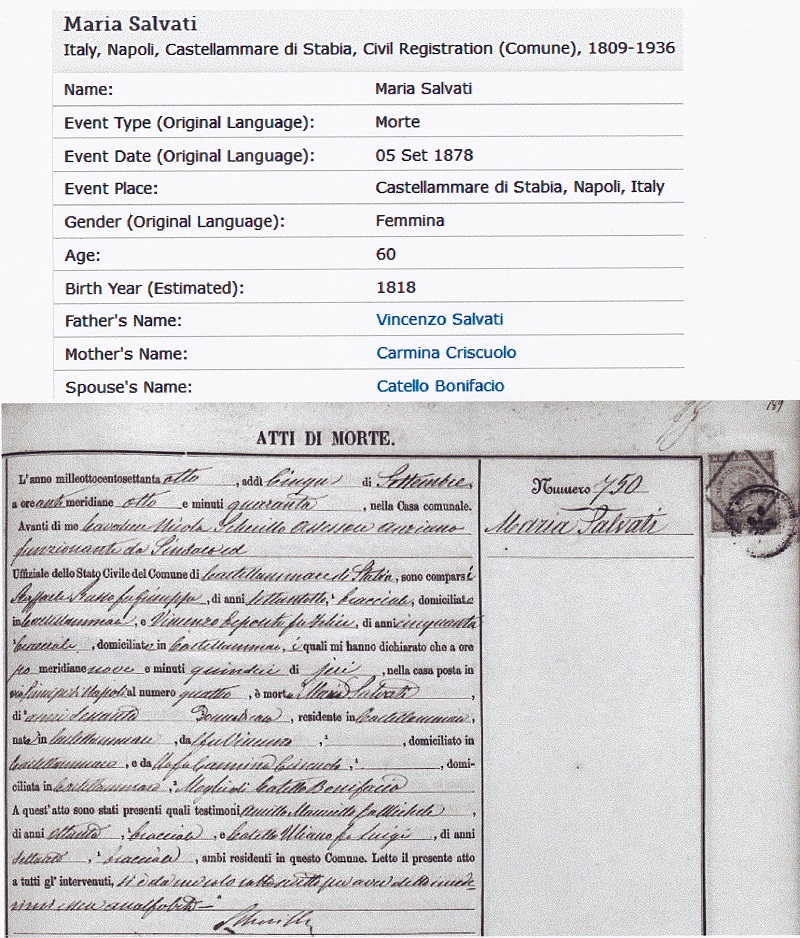 Maria Salvati
Italy, Napoli, Castellammare di Stabia, Civil Registration (Comune), 1809-1936
Name: Maria Salvati
Event Type (Original Language): Morte
Event Date (Original Language): 05 Set 1878
Event Place: Castellammare di Stabia, Napoli, Italy
Gender (Original Language): Femmina
Age: 60
Birth Year (Estimated): 1818
Father's Name: Vincenzo Salvati
Mother's Name: Carmina Criscuolo
Spouse's Name: Catello Bonifacio
ATTI DI MORTE.
L'anno milleottocentosettanta otto, addì Cinque di Settembre,
a ore anti meridiane otto e minuti quaranta, nella Casa comunale.
Avanti di me Cavaliere Nicola Scherillo Assessore anziano
funzionante da Sindaco ed
Uffiziale dello Stato Civile del Comune di Castellammare di Stabia, sono comparsi
Raffaele Russo fu Giuseppe, di anni, bracciale, domiciliato
in Castellammare, e Vincenzo Esposito fu, di anni cinquanta
bracciale, domiciliato in Castellammare, i quali mi hanno dichiarato che a ore
po meridiane nove e minuti quindici di jeri, nella casa posta in
via Principe di Napoli al numero quattro, è morta Maria Salvati
di anni sessanta, residente in Castellammare,
nata in Castellammare, da fu Vincenzo, domiciliato in
Castellammare, e da fu Carmina Criscuolo, domi-
ciliata in Castellammare, Moglie di Catello Bonifacio
A quest'atto sono stati presenti quali testimoni fu Michele,
di anni ottanta, bracciale, e Catello Uliano fu Luigi, di anni
settanta, bracciale, ambi residenti in questo Comune. Letto il presente atto
a tutti gl' intervenuti, si è da me solo sottoscritto per aver detto i mede-
simi essere analfabeti
Scherillo
Numero 750
Maria Salvati